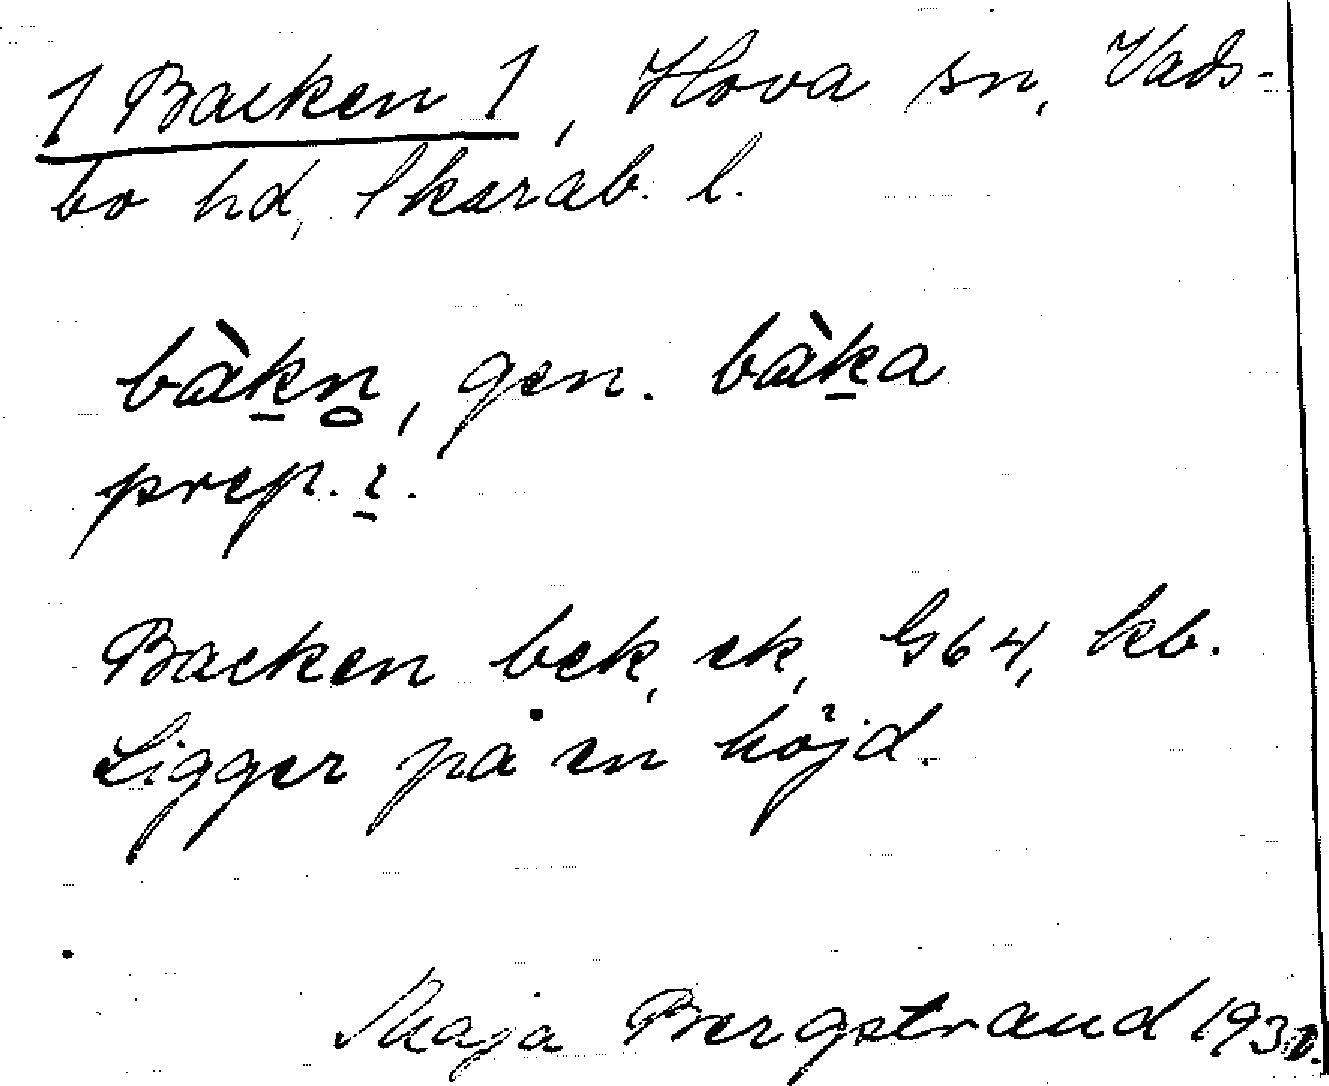 1 Backen 1, Hova sn, Vads-
bo hd, Skarab. l.
bàk̠n̥, gen. bàk̠a
prep. ɩ̠.
Backen bek, ek, G64, kb.
Ligger på en höjd.
Maja Bergstrand 1930.